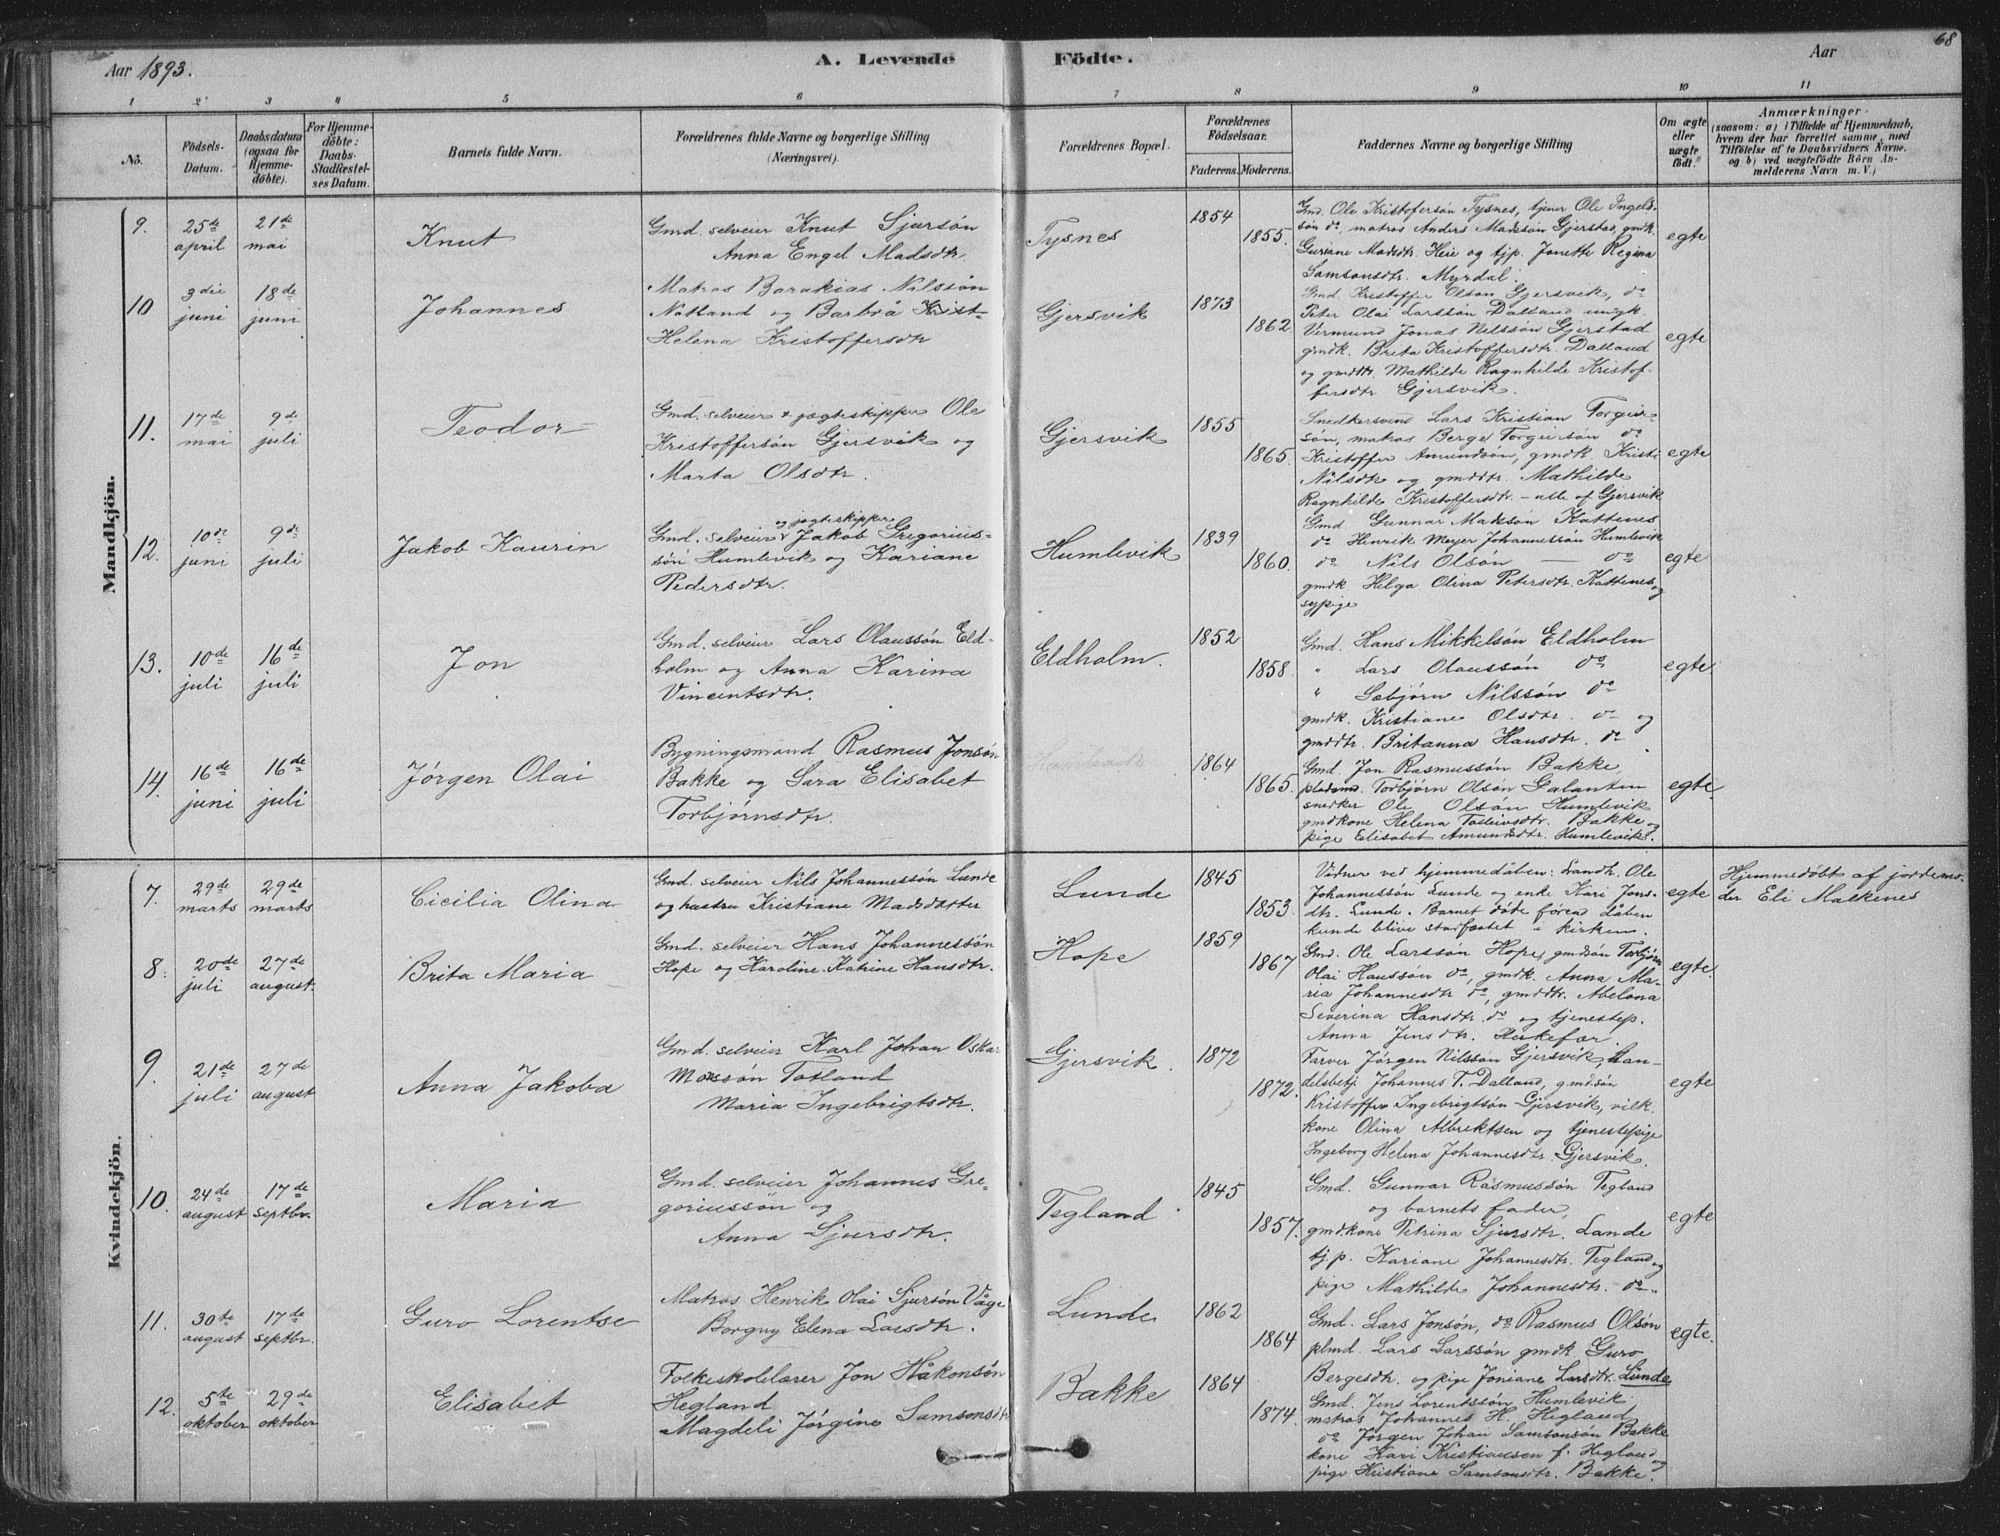 68
Aar 1893.
A. Levende Födte.
Aar
1 2 3 4 5 6 7 8 9 10 11
No.
Födsels-Datum.
Daabsdatum (ogsaa for Hjemme-döbte).
For Hjemme-döbte: Daabs-Stadfæstel-ses Datum.
Barnets fulde Navn.
Forældrenes fulde Navne og borgerlige Stilling (Næringsvei).
Forældrenes Bopæl.
Forældrenes Födselsaar.
Faderens. Moderens.
Faddernes Navne og borgerlige Stilling
Om ægte eller uægte födt.
Anmærkninger (saasom: a) i Tilfælde af Hjemmedaab, hvem der har forrettet samme, med Tilföielse af to Daabsvidners Navne, og b) ved uægtefödte Börn An-melderens Navn m. V.)
Mandkjön.
9. 25de april
21de mai
Knut
Gmd. selveier Knut Sjursön
Anna Engel Madsdtr.
Tysnes
1854
1855.
Gmd. Ole Kristofersön Tysnes, tjener Ole Ingels-
sön do, matros Anders Madssön Gjerstad, gmdk.
Guriane Madsdtr. Heie og tjp. Jonette Regina
Samsonsdtr. Myrdal.
egte
10 3die juni
18de juni
Johannes
Matros Barakias Nilssön
Nötland og Barbrå Krist-
Helena Kristoffersdtr
Gjersvik
1873
1862
Gmd. Kristoffer Olson Gjersvik, do
Peter Olai Larssön Dalland ungk
Vermund Jonas Nilssön Gjerstad
gmdk. Brita Kristoffersdtr. Dalland
og gmdtr. Mathilde Ragnhilde Kristof-
fersdtr Gjersvik.
egte
11. 17de mai
9de juli
Teodor
Gmd. selveier & jægteskipper Ole
Kristoffersön Gjersvik og
Marta Olsdtr.
Gjersvik
1855
1865.
Snedkersvend Lars Kristian Torgier-
sön, matros Berge Torgiersön do
Kristoffer Amundsön, gmdk. Kristi
Nilsdtr og gmddtr. Mathilde
Ragnhilde Kristoffersdtr. – alle af Gjersvik
egte
12. 10de juni
9de juli
Jakob Kaurin
og jægteskipper
Gmd. selveier Jakob Gregorius-
sön Humlevik og Kariane
Pedersdtr.
Humlevik
1839
1860.
Gmd Gunnar Madssön Kattenes
do Henrik Meyer Johannessön Humlevik
do Nils Olsön — do
gmdk. Helga Olina Petersdtr. Kattenes og
sypige
egte
13. 10de juli
16de juli
Jon
Gmd. selveier Lars Olaussön Eld-
holm og Anna Karina
Vincentsdtr.
Eldholm.
1852
1858.
Gmd. Hans Mikkelsön Eldholm
" Lars Olaussön do
" Sæbjörn Nilssön do
gmdk. Kristiane Olsdtr. do og
gmddtr. Britanna Hansdtr. do
egte.
14. 16de juni
16de juli
Jørgen Olai
Bygningsmand Rasmus Jonsön
Bakke og Sara Elisabet
Torbjørnsdtr.
Humlevik
1864
1865.
Gmd. Jon Rasmussön Bakke
pladsmd. Torbjörn Olsön Galanten
snedker Ole Olsön Humlevik
gmdkone Helena Tolleivsdtr. Bakke og
pige Elisabet Amundsdtr. Humlevik.
egte.
Kvindekjön.
7. 29de marts
29de marts
Cicilia Olina
Gmd. selveier Nils Johannessön Lunde
og hustru Kristiane Madsdatter
Lunde
1845
1853.
Vidner ved hjemmedåben: Landh. Ole
Johannessön Lunde og enke Kari Jons-
dtr. Lunde. Barnet döde förend dåben
kunde blive stadfæstet i kirken.
egte
Hjemmedöbt af jordemo-
der Eli Malkenes
8. 20de juli
27de august.
Brita Maria
Gmd. selveier Hans Johannessön
Hope og Karoline Katrine Hansdtr.
Hope
1859
1867
Gmd. Ole Larssön Hope, gmdsön Torbjörn
Olai Hanssön do, gmdk. Anna Ma-
ria Johannesdtr do, gmddtr. Abelona
Severina Hansdtr. do og tjenestep.
Anna Jensdtr. Heskefar.
egte.
9. 21de juli
27de august
Anna Jakoba
Gmd. selveier Karl Johan Oskar
Monssön Totland
Maria Ingebrigtsdtr.
Gjersvik.
1872
1872.
Farver Jørgen Nilsson Gjersvik, han-
delsbetj. Johannes T. Dalland, gmdsön
Kristoffer Ingebrigtsön Gjersvik, vilk.
kone Olina Albrektsen og tjenestepige
Ingeborg Helena Johannesdtr. Gjersvik.
egte
10. 24de august
17de septbr.
Maria
Gmd. selveier Johannes Gre-
goriussön og
Anna Sjursdtr.
Tegland
1845
1857.
Gmd. Gunnar Rasmussön Tegland
og barnets fader,
gmdkone Petrina Sjursdtr. Lande
tj.p. Kariane Johannesdtr. Tegland og
pige Mathilde Johannesdtr. do.
egte
11. 30te august
17de septbr.
Guro Lorentse
Matros Henrik Olai Sjursön Våge
Borguy Elena Larsdtr.
Lunde
1862
1864
Gmd. Lars Jonsön, do Rasmus Olsön
plmd. Lars Larssön gmdk. Guro
Bergesdtr. og pige Joniane Larsdtr. Lunde
egte.
12. 5te oktober
29de oktober
Elisabet
Folkeskolelærer Jon Håkonsön
Hegland
Magdeli Jörgine Samsonsdtr
Bakke
1864
1874.
Gmd. Jens Lorentssön Humlevik
matros Johannes H. Hegland
do Jørgen Johan Samsonsön Bakke
kone Kari Kristiansen f. Hegland og
pige Kristiane Samsonsdtr. Bakke.